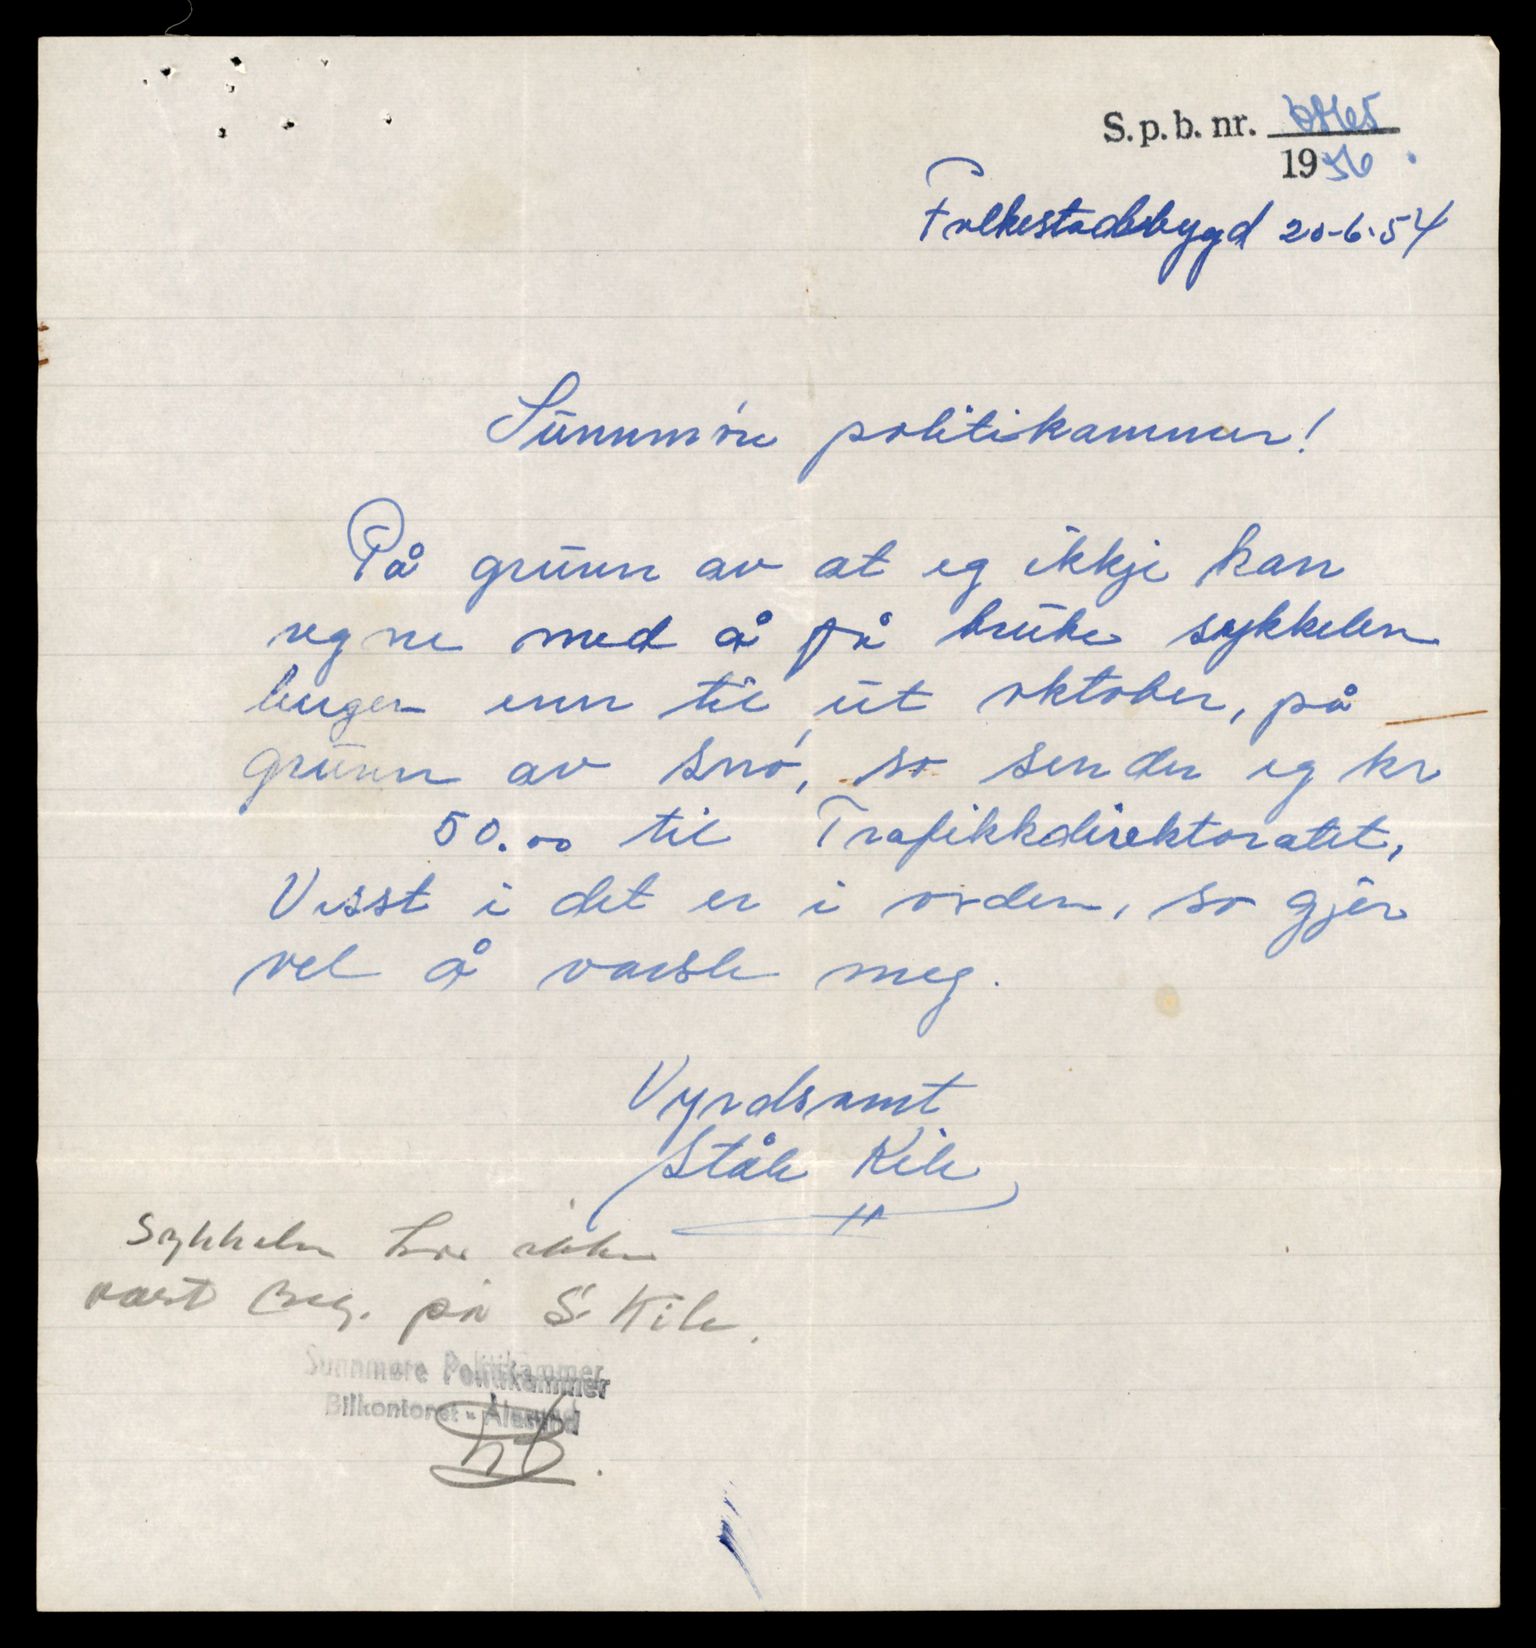 S.p.b. nr.
1956.
Folkestadbygd 20-6-54
Sunnmöre politikammer!
På grunn av at eg ikkje kan
regne med å få bruke sykkelen
lenger enn til ut oktober, på
grunn av snö, so sender eg kr
50.00 til Trafikkdirektoratet,
Visst i det er i orden, so gjer
vel å varsle meg.
Vyrdsamt
Ståle Kile
Sykkelen har ikke
vært reg. på S. Kile.
Sunnmøre Politikammer
Bilkontoret - Ålesund